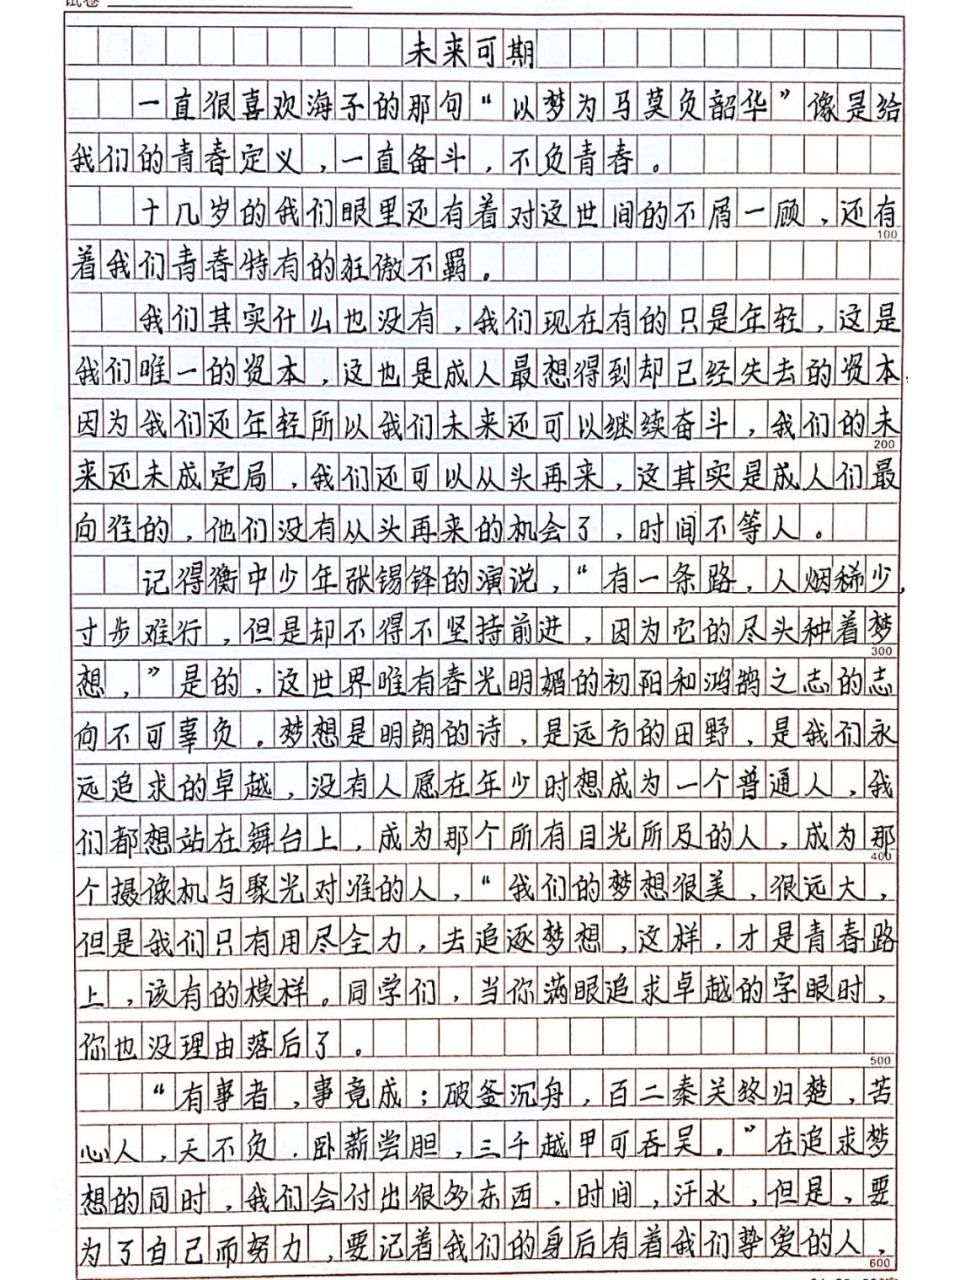 未来可期
一直很喜欢海子的那句“以梦为马莫负韶华”像是给
我们的青春定义，一直备斗，不负青春。
十几岁的我们眼里还有着对这世间的不屑一顾，还有
100
着我们青春特有的狂傲不羁。
我们其实什么也没有，我们现在有的只是年轻，这是
我们唯一的资本，这也是成人最想得到却已经失去的资本，
因为我们还年轻所以我们未来还可以继续奋斗，我们的未
200
来还未成定局，我们还可以从头再来，这其实是成人们最
向往的，他们没有从头再来的机会了，时间不等人。
记得衡中少年张锡锋的演说，“有一条路，人烟稀少，
寸步难行，但是却不得不坚持前进，因为它的尽头种着梦
300
想，”是的，这世界唯有春光明媚的初阳和鸿鹄之志的志
向不可辜负。梦想是明朗的诗，是远方的田野，是我们永
远追求的卓越，没有人愿在年少时想成为一个普通人，我
们都想站在舞台上，成为那个所有目光所及的人，成为那
400
个摄像机与聚光对准的人，“我们的梦想很美，很远大，
但是我们只有用尽全力，去追逐梦想，这样，才是青春路
上，该有的模样。同学们，当你满眼追求卓越的字眼时，
你也没理由落后了。
500
“有事者，事竟成；破釜沉舟，百二秦关终归楚，苦
心人，天不负．卧薪尝胆，三千越甲可吞吴。”在追求梦
想的同时，我们会付出很多东西，时间，汗水，但是，要
为了自己而努力，要记着我们的身后有着我们挚爱的人，
600